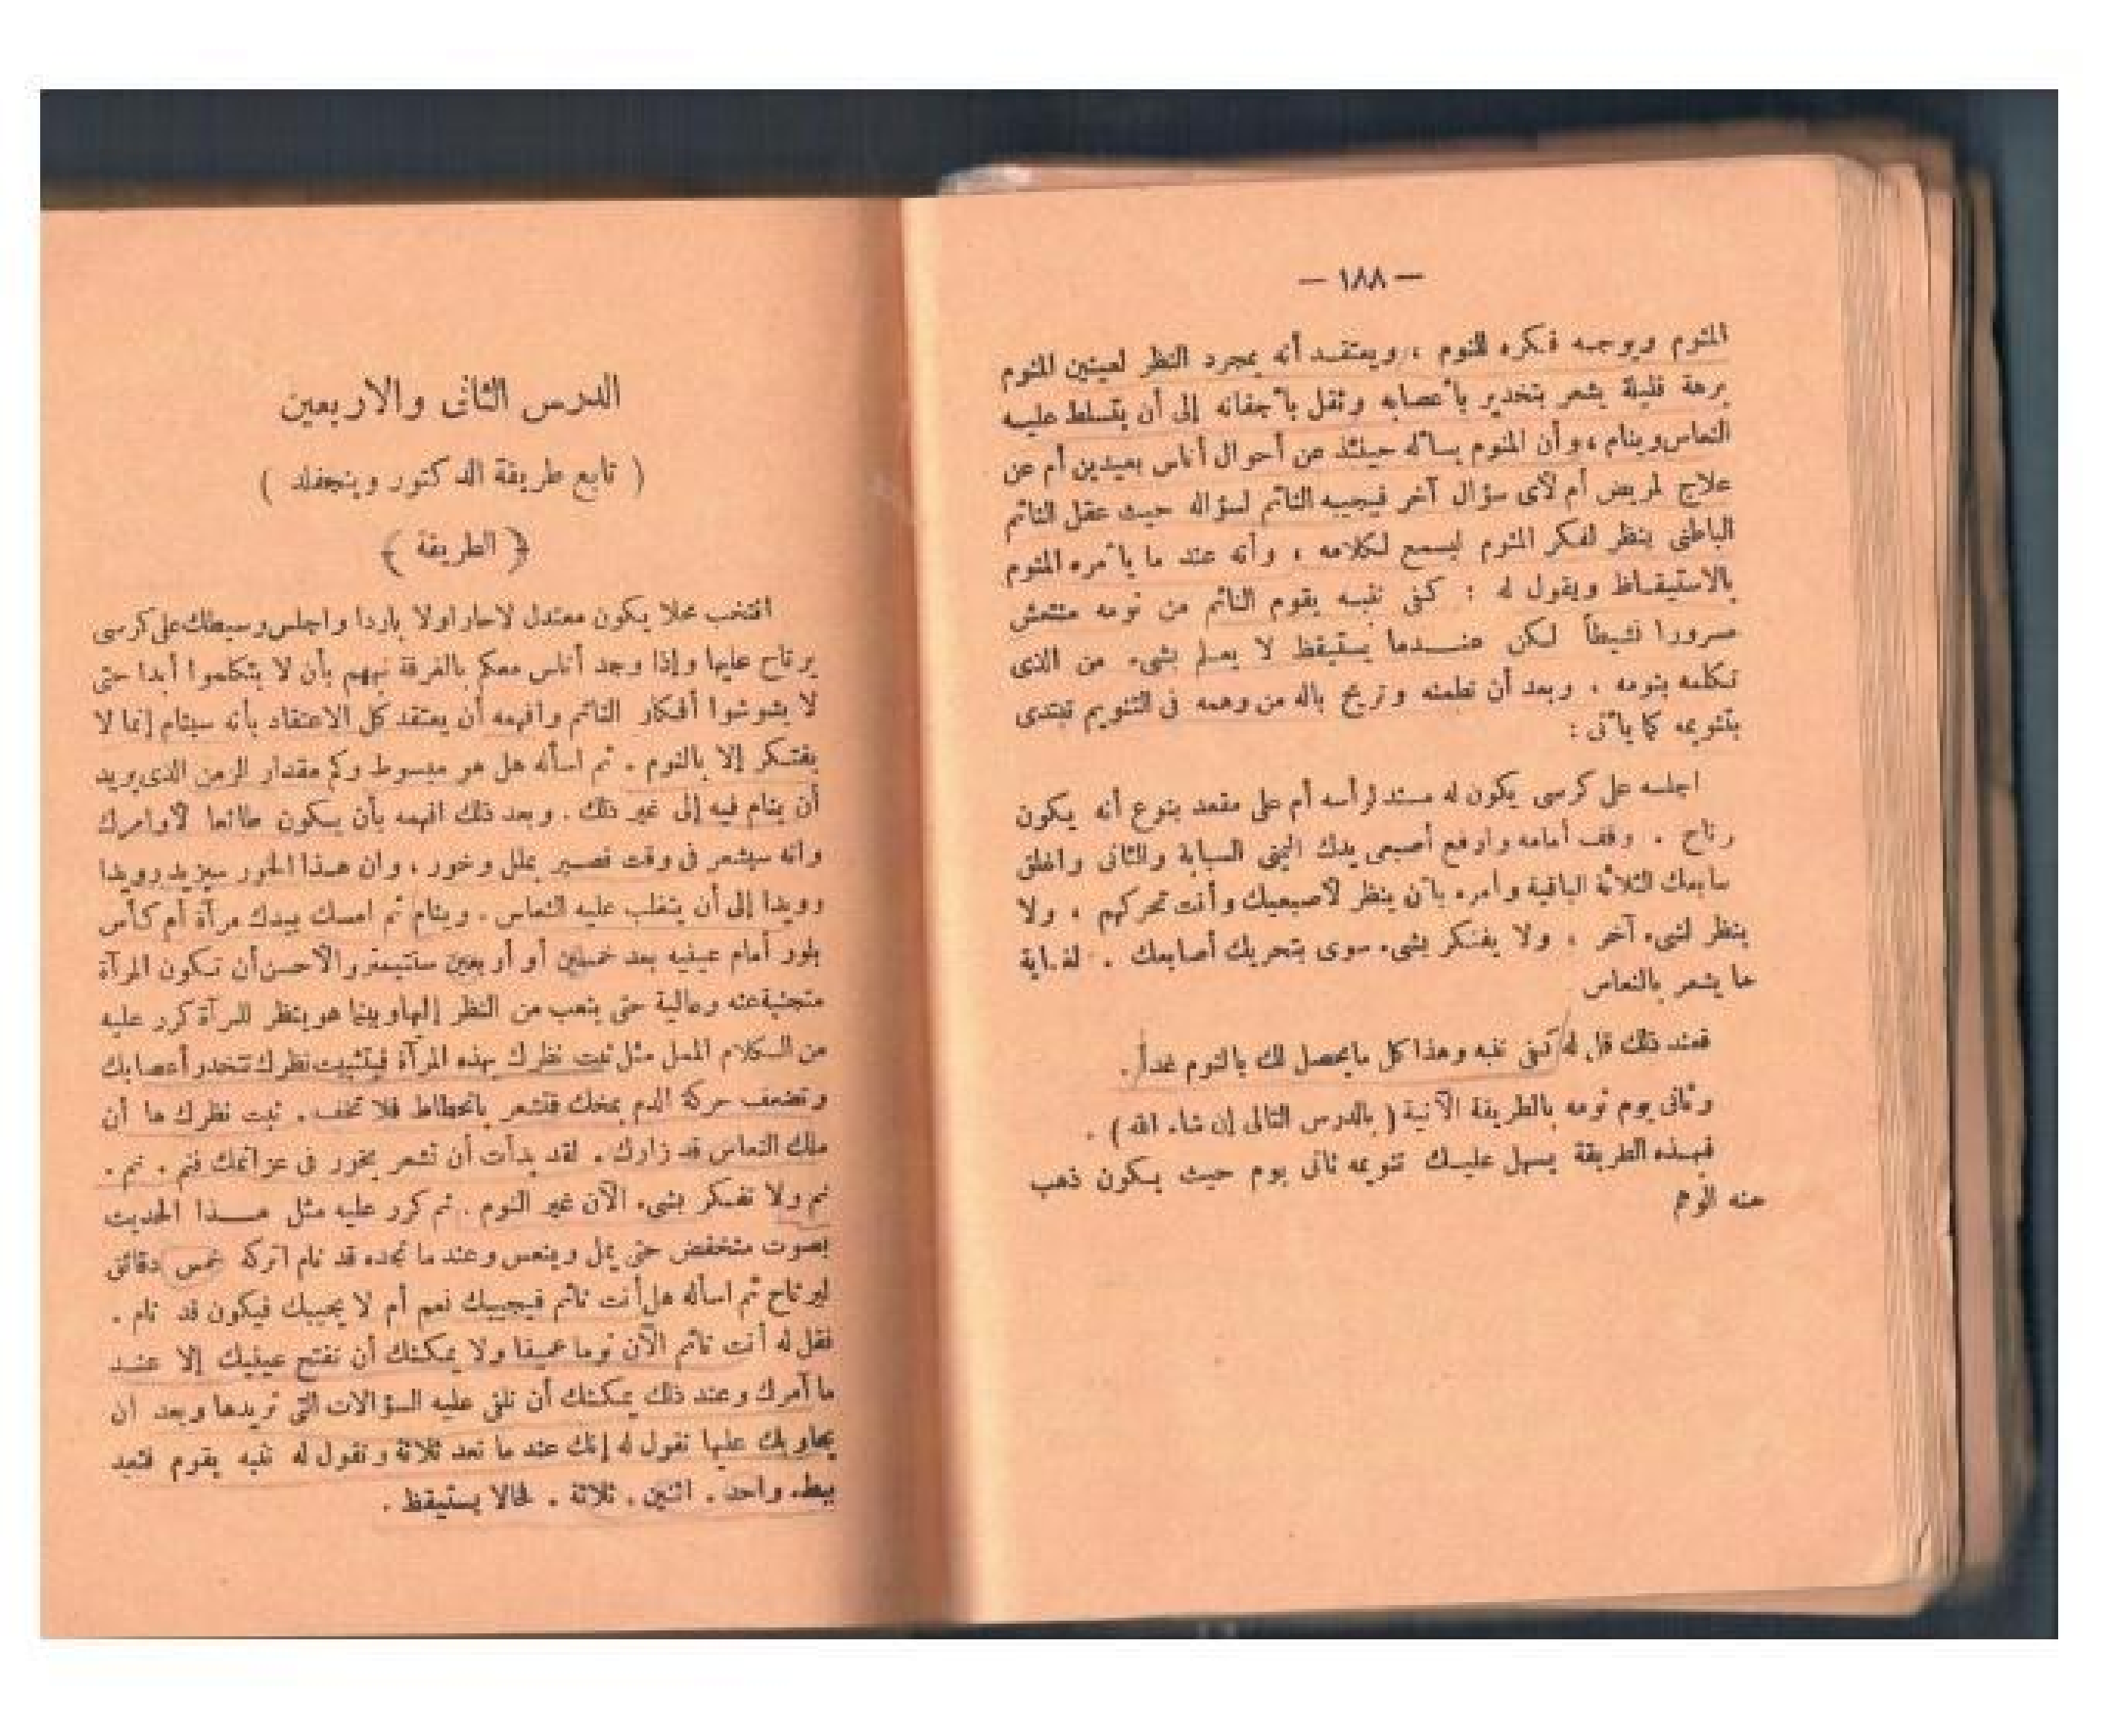 — ١٨٨ —
المنوم ويوجه فكره للنوم ، ويعتقد أنه بمجرد النظر لعينين المنوم
برهة قليلة يشعر بتخدير بأعصابه وثقل بأجفانه إلى أن يتسلط عليه
النعاس وينام ، وأن المنوم يسأله حينئذ عن أحوال أناس بعيدين أم عن
علاج لمريض أم لأى سؤال آخر فيجيبه النائم لسؤاله حيث عقل النائم
الباطنى ينظر لفكر المنوم ليسمع لكلامه ، وأنه عند ما يأمره المنوم
بالاستيقاظ ويقول له : كفى تنبه يقوم النائم من نومه منتعش
مسرورا نشيطاً لكن عندما يستيقظ لا يعلم بشىء من الذى
تكلمه بنومه . وبعد أن تطمنه وتريح باله من وهمه فى التنويم تبتدى
بتنويمه كما يأتى :
اجلسه على كرسى يكون له مسند لرأسه أم على مقعد بنوع أنه يكون
رتاح . وقف أمامه وارفع أصبعى يدك اليمنى السبابة والثانى واغلق
سابعك الثلاثة الباقية وأمره بأن ينظر لأصبعيك وأنت تحركهم ، ولا
ينظر لشىء آخر . ولا يفتكر بشىء سوى بتحريك أصابعك . لغاية
ما يشعر بالنعاس
فعند ذلك قل له كفى تنبه وهذا كل مايحصل لك بالنوم غداً .
وثانى يوم نومه بالطريقة الآتية ( بالدرس التالى إن شاء الله ) .
فبهذه الطريقة يسهل عليك تنويمه ثانى يوم حيث يكون ذهب
عنه الوهم
الدرس الثانى والاربعين
( تابع طريقة الدكتور وينجفلد )
﴿ الطريقة ﴾
انتخب محلا يكون معتدل لا حارا ولا باردا واجلس وسيطك على كرسى
يرتاح عليها وإذا وجد أناس معكم بالغرفة نبههم بأن لا يتكلموا أبدا حتى
لا يشوشوا أفكار النائم وافهمه أن يعتقد كل الاعتقاد بأنه سينام إنما لا
يفتكر إلا بالنوم . ثم اسأله هل هو مبسوط وكم مقدار الزمن الذى يريد
أن ينام فيه إلى غير ذلك . وبعد ذلك افهمه بأن يكون طائعا لأوامرك
وانه سيشعر فى وقت قصير بملل وخور ، وان هذا الخور سيزيد رويدا
رويدا إلى أن يتغلب عليه النعاس . وينام ثم امسك بيدك مرآة أم كأس
بلور أمام عينيه بعد خمسين أو أربعين سنتيمتر والأحسن أن تكون المرآة
منحنية عنه وعالية حتى يتعب من النظر إليها وبينما هو ينظر للمرآة كرر عليه
من الكلام الممل مثل ثبت نظرك بهذه المرآة فبتثبيت نظرك تتخدر أعصابك
وتضعف حركة الدم بمخك فتشعر بانحطاط فلا تخف . ثبت نظرك ها أن
ملك النعاس قد زارك . لقد بدأت أن تشعر بخور فى عزائمك فنم . نم .
نم ولا تفتكر بشىء الآن غير النوم . ثم كرر عليه مثل هذا الحديث
بصوت منخفض حتى يمل وينعس وعند ما تجده قد نام اتركه خمس دقائق
ليرتاح ثم اسأله هل أنت نائم فيجيبك نعم أم لا يجيبك فيكون قد نام .
فقل له أنت نائم الآن نوما عميقا ولا يمكنك أن تفتح عينيك إلا عند
ما آمرك وعند ذلك يمكنك أن تلقى عليه السؤالات التى تريدها وبعد أن
يجاوبك عليها تقول له إنك عند ما تعد ثلاثة وتقول له تنبه يقوم فتعد
ببطء واحد . اثنين . ثلاثة . فحالا يستيقظ .